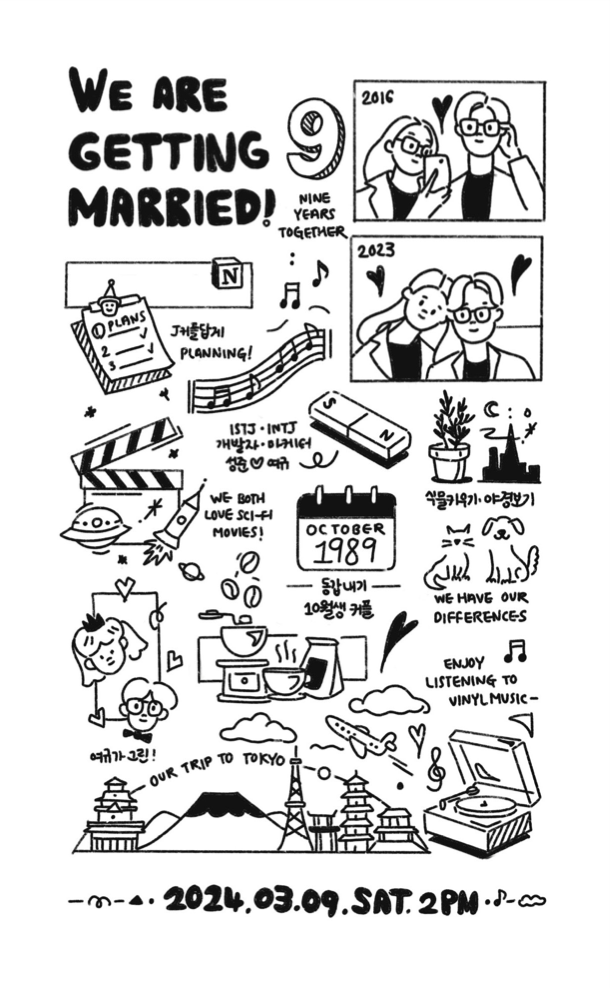 WE ARE
GETTING
MARRIED!
9
NINE
YEARS
TOGETHER
2016
2023
N
PLANS
1
2
3
J커플답게
PLANNING!
ISTJ · INTJ
개발자 · 마케터
성준♡여규
S
N
식물키우기 · 야경보기
WE BOTH
LOVE SCI-FI
MOVIES!
OCTOBER
1989
동갑내기
10월생 커플
WE HAVE OUR
DIFFERENCES
ENJOY
LISTENING TO
VINYL MUSIC-
여규가 그린!
OUR TRIP TO TOKYO
2024.03.09.SAT. 2PM